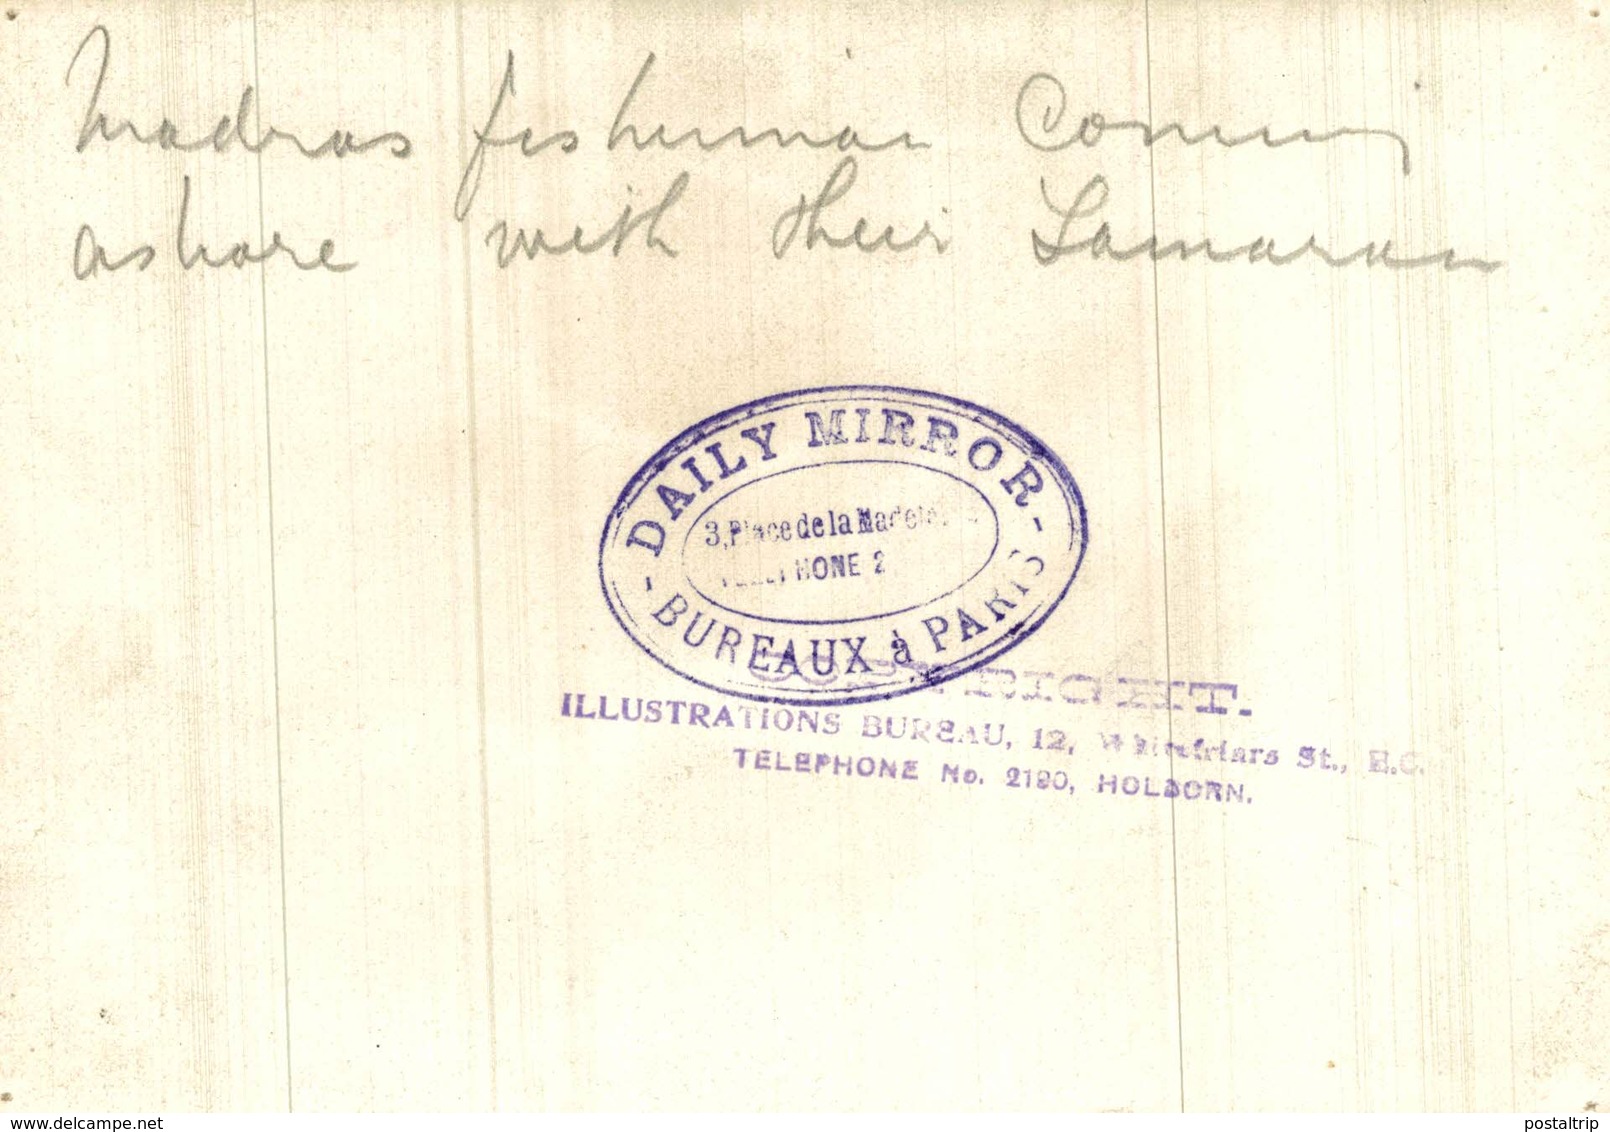 Madras fisherman Coming
ashore with their Lamaran
- DAILY MIRROR -
3, Place de la
TELEPHONE 2
BUREAUX à PARIS
COPYRIGHT.
ILLUSTRATIONS BUREAU, 12, Whitefriars St., E.C.
TELEPHONE No. 2190, HOLBORN.
www.delcampe.net
postaltrip